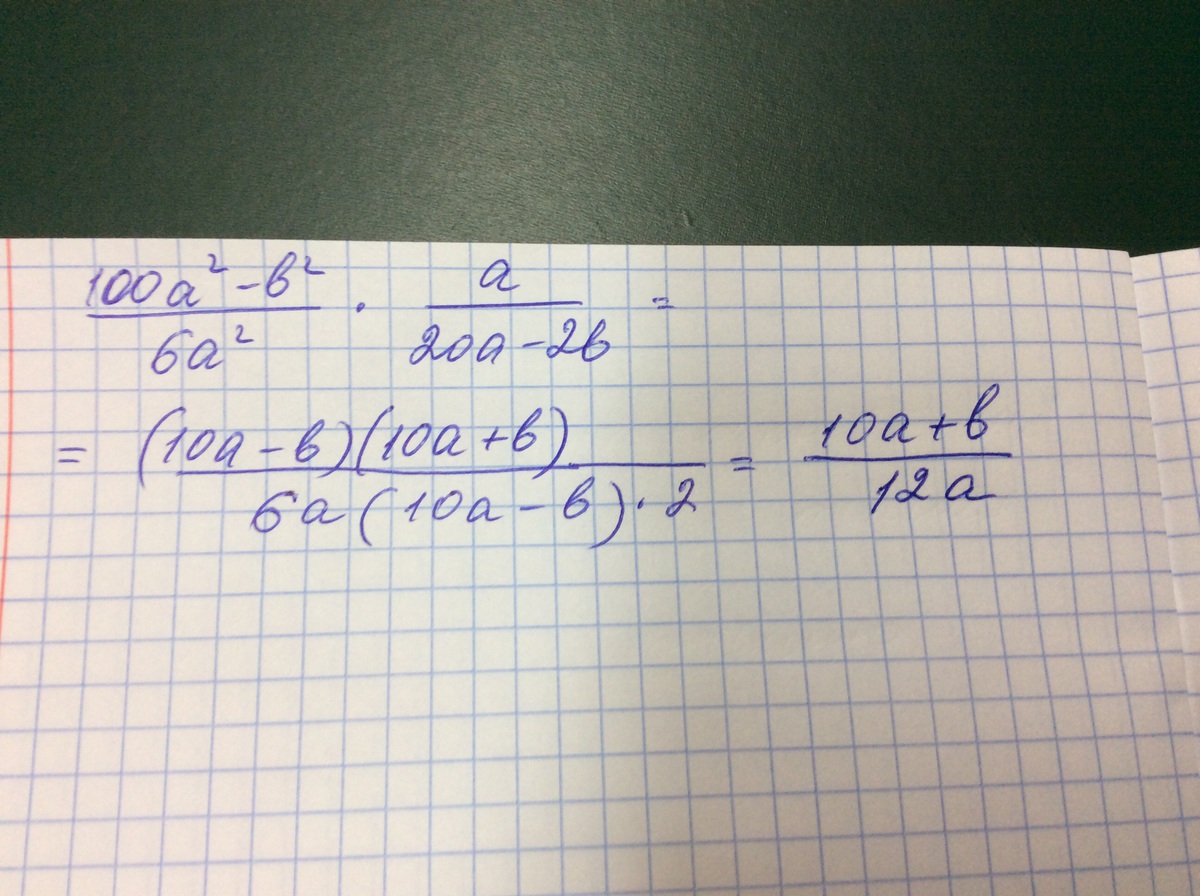 (100a² - b²)/(6a²) · a/(20a - 2b) =
= ((10a - b)(10a + b))/(6a(10a - b) · 2) = (10a + b)/(12a)